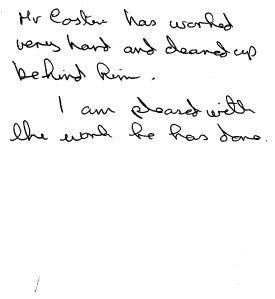 Mr Coster has worked
very hard and cleaned up
behind him.
I am pleased with
the work he has done.